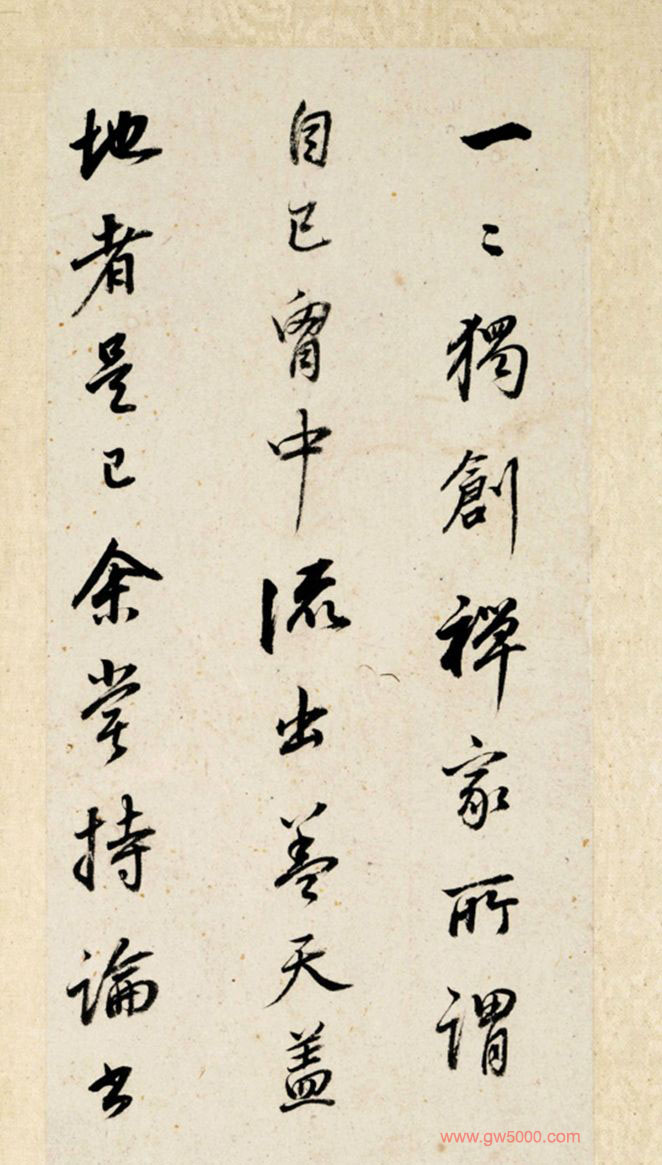 一〻獨創禪家所謂
自己胷中流出葢天蓋
地者是已余嘗持論書
www.gw5000.com